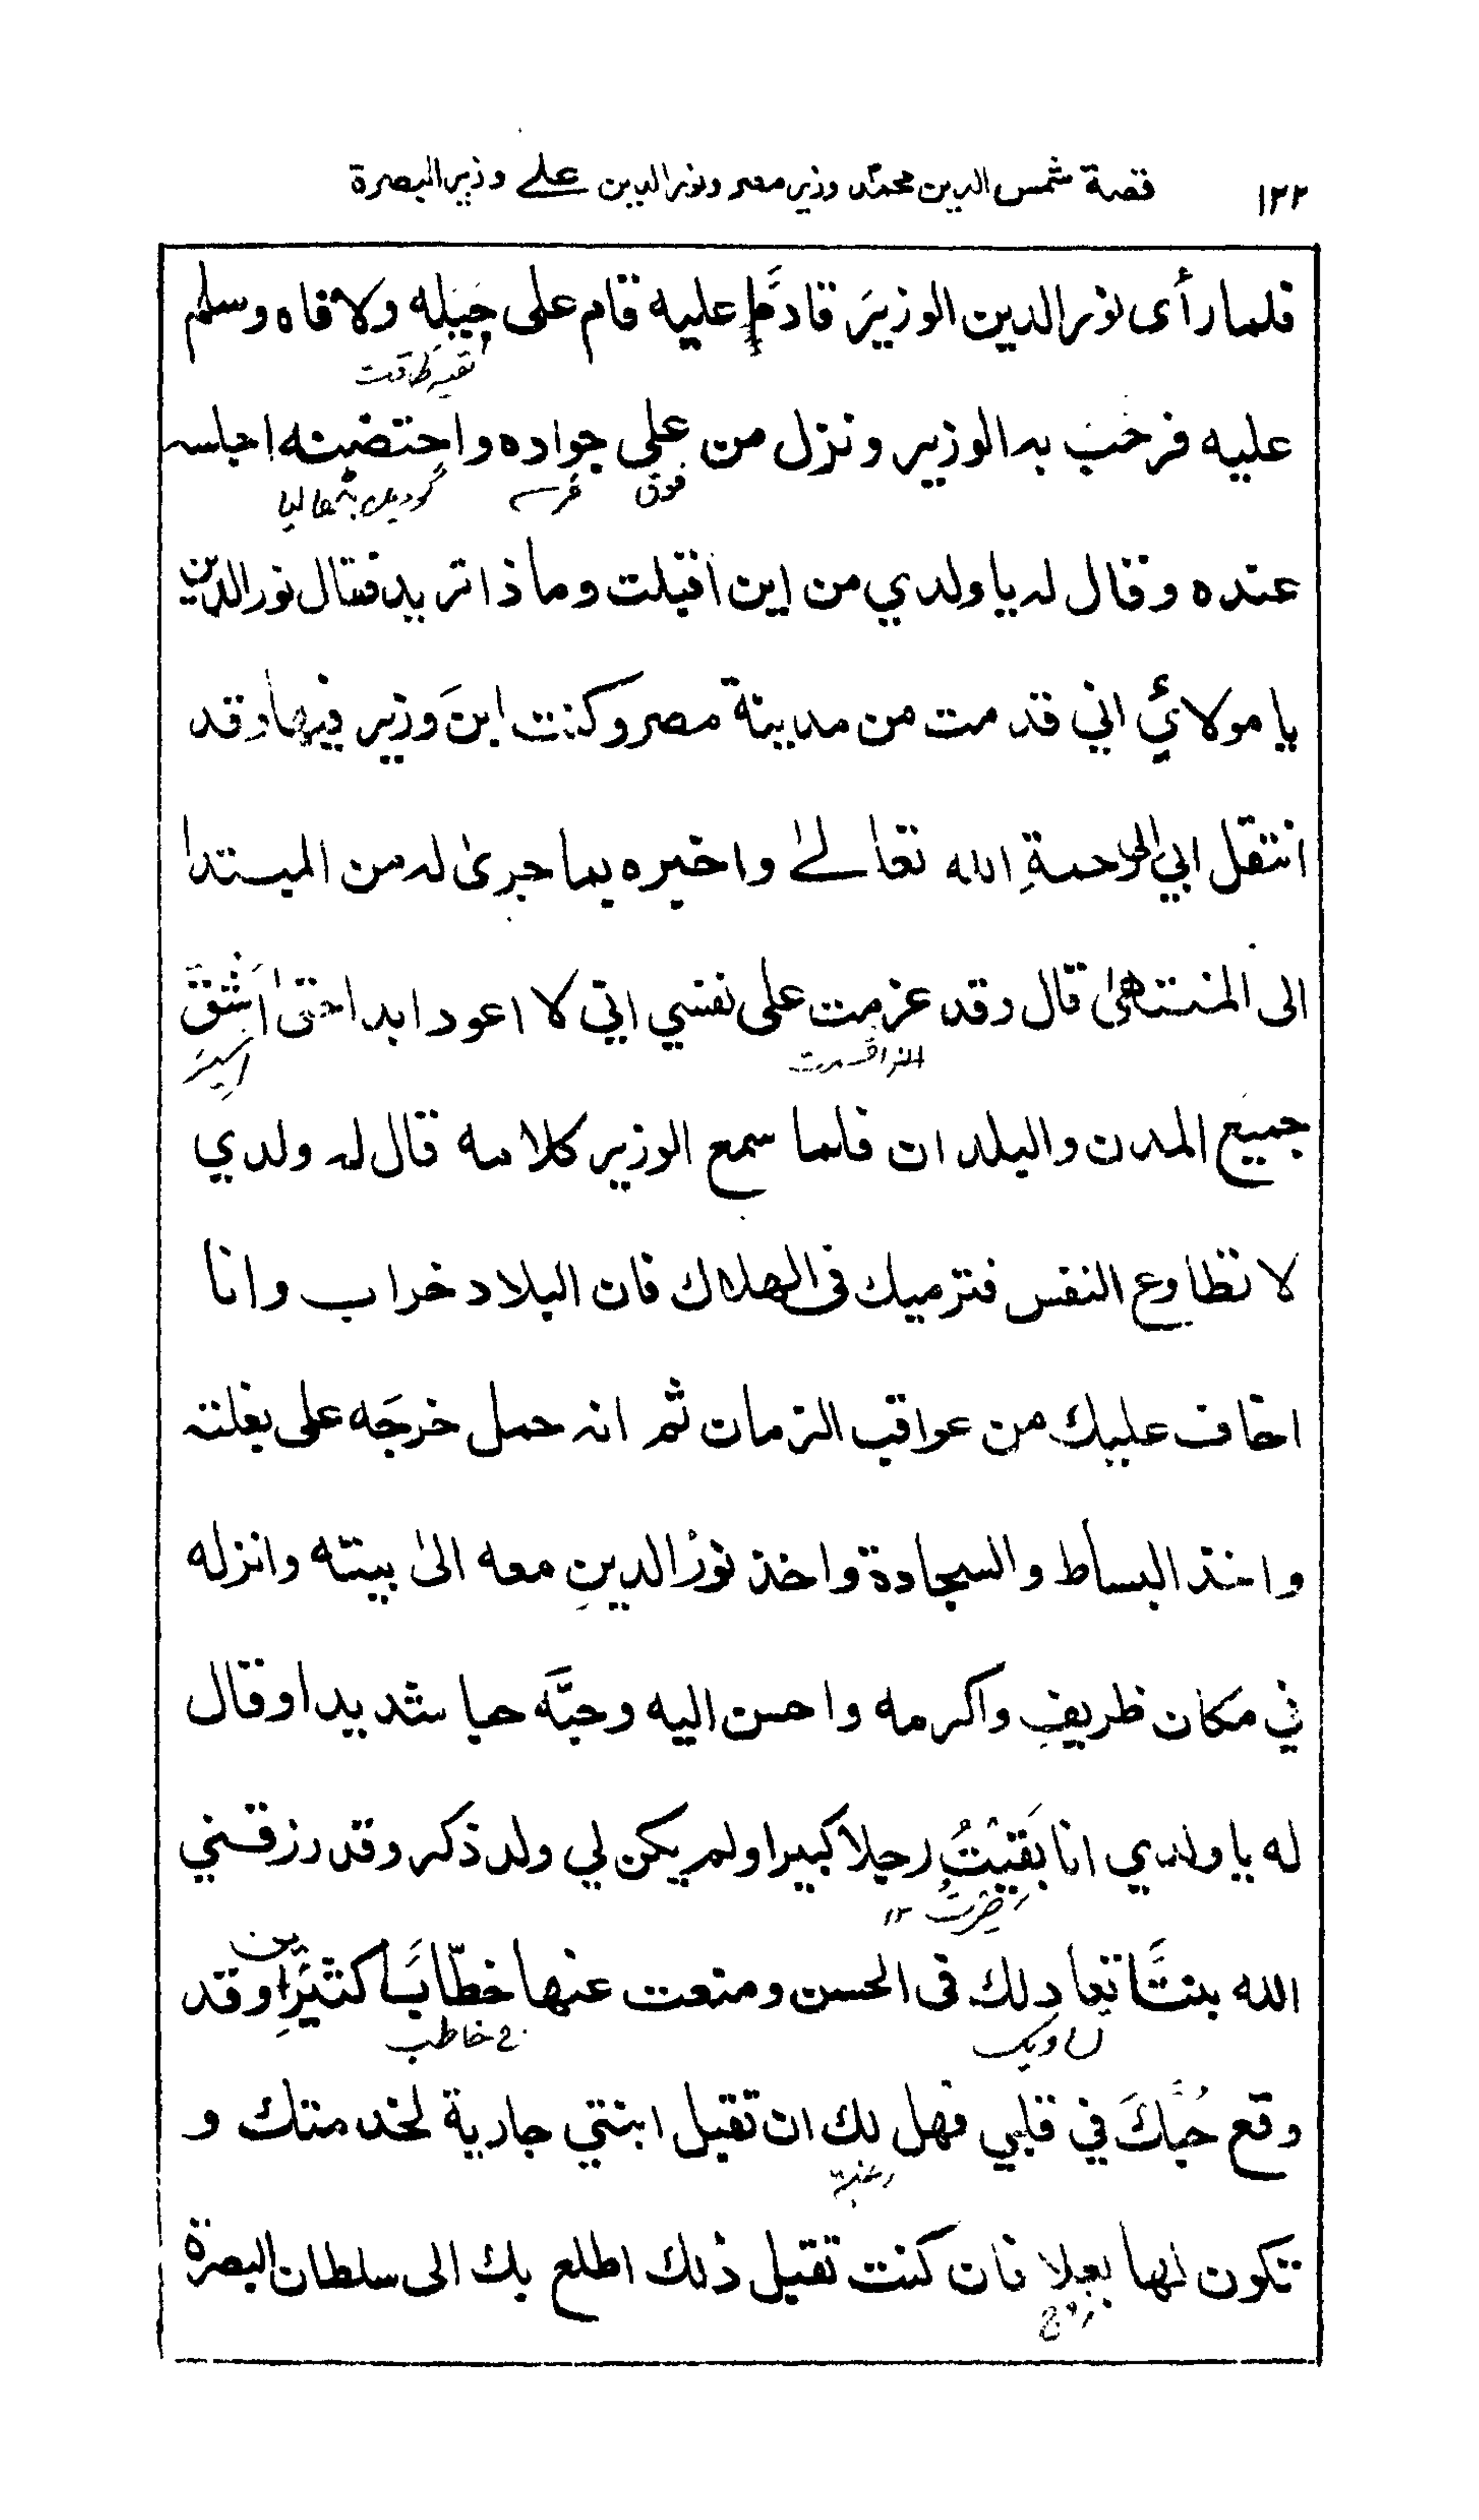 ١٢٢ قصة شمس الدين محمّد وزير مصر ونور الدين علے وزير البصرة
فلما رأى نور الدين الوزيرَ قادمًا عليه قام على حِيَلِه ولاقاه وسلم
عليه فرحّب به الوزير ونزل من على جواده واحتضنه اجلسه
فوق فرس
عنده وقال له يا ولدي من اين اقبلت وما ذا تريد فقال نور الدين
يا مولائي اني قدمت من مدينة مصر وكنت ابنَ وزير فيها وقد
انتقل ابي الى رحمةِ الله تعالےٰ واخبره بما جرىٰ له من المبتدا
الى المنتهىٰ قال وقد عزمت على نفسي اني لا اعود ابدا حتىٰ اَشُقَّ
جميعَ المدن والبلدان فلما سمع الوزير كلامه قال له ولدي
لا تطاوع النفس فترميك فى الهلاك فان البلاد خراب وانا
اخاف عليك من عواقب الزمان ثم انه حمل خرجَه على بغلته
واخذ البساط والسجادة واخذ نورُ الدينِ معه الىٰ بيته وانزله
في مكان ظريفٍ واكرمه واحسن اليه وحبَّه حبا شديدا وقال
له يا ولدي انا بَقيْتُ رجلا كبيرا ولم يكن لي ولد ذكر وقد رزقني
صرتُ ١٢
الله بنتًا تعادلك فى الحسن ومنعت عنها خطّابًا كثيرًا وقد
ج خاطب
وقع حُبُّكَ في قلبي فهل لك ان تقبل ابنتي جارية لخدمتك و
رغبة
تكون لها بعلا فان كنت تقبل ذلك اطلع بك الى سلطان البصرة
زوج